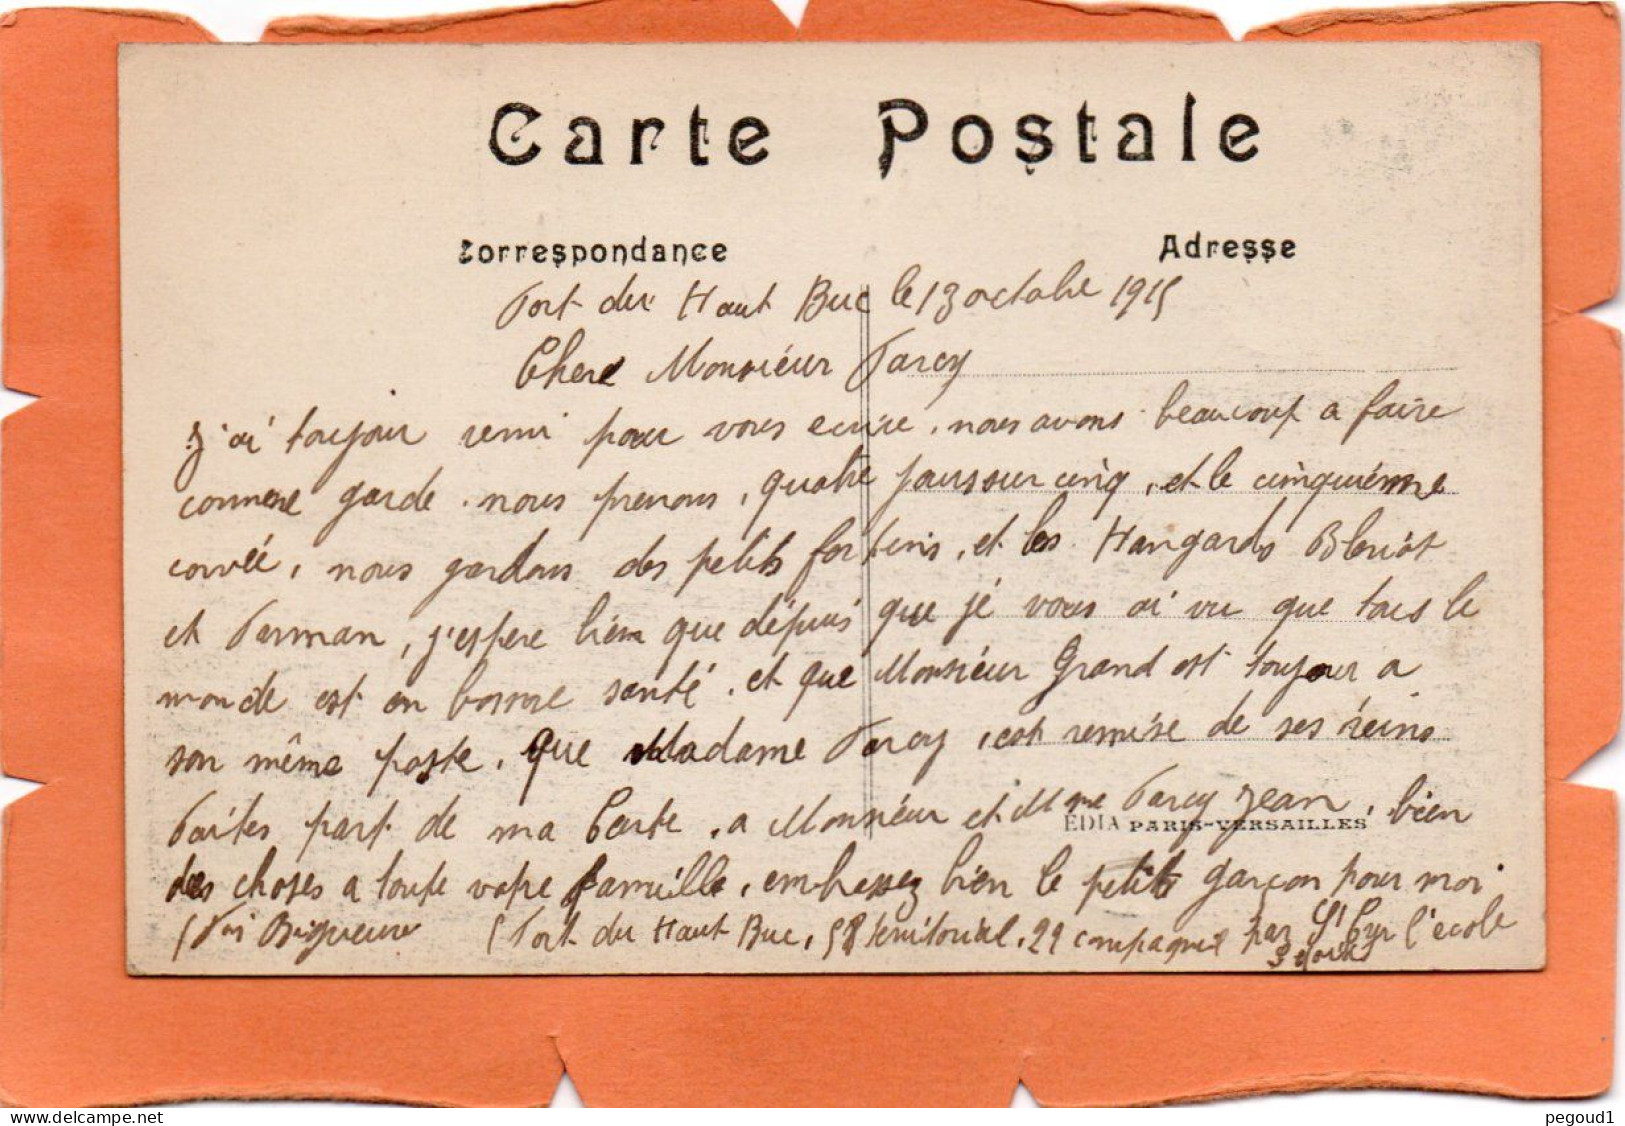 Carte Postale
Correspondance
Adresse
Fort du Haut Buc le 13 octobre 1915
Chere Monsiéur Farcy
J'ai toujour remi pour vous ecrire, nous avons beaucoup a faire
comme garde. nous prenons, quatre jours sur cinq, et le cinquiéme
corvéé, nous gardons des petits fortins, et les Hangards Bleriot
et Farman, j'espere bien que dépuis que jé vous ai vu que tous le
monde est en bonne santé. et que Monsiéur Grand est toujour a
son même poste, que Madame Farcy, est remise de ses reins
Faites part de ma Carte, a Monsiéur et Mme Farcy Jean, bien
EDIA PARIS-VERSAILLES
des choses a toute votre famille, embrassez bien le petit garçon pour moi
Fort du Haut Buc, 58 territorial, 22 compagnie par St Cyr l'école
pegoud1